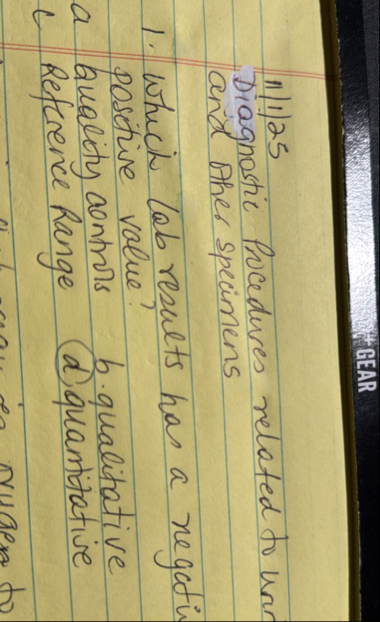 11/1/25
Diagnostic Procedures related to
and Other specimens
1. Which lab results has a
positive value?
a quality controls b. qualitative
c Reference Range d quantitative
to
GEAR